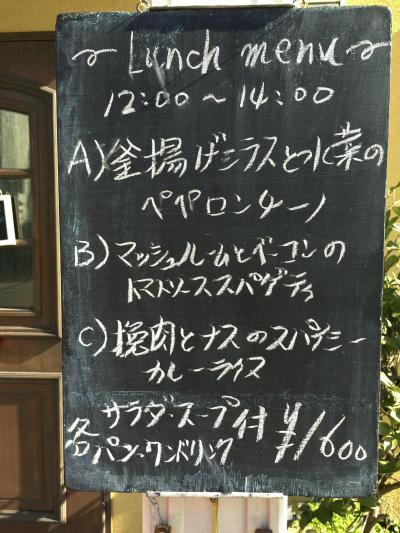 Lunch menu
12:00～14:00
A)釜揚げシラスと水菜の
ペペロンチーノ
B)マッシュルームとベーコンの
トマトソーススパゲティ
C)挽肉とナスのスパイシー
カレーライス
各 サラダ・スープ付 ¥1600
パン・ワンドリンク